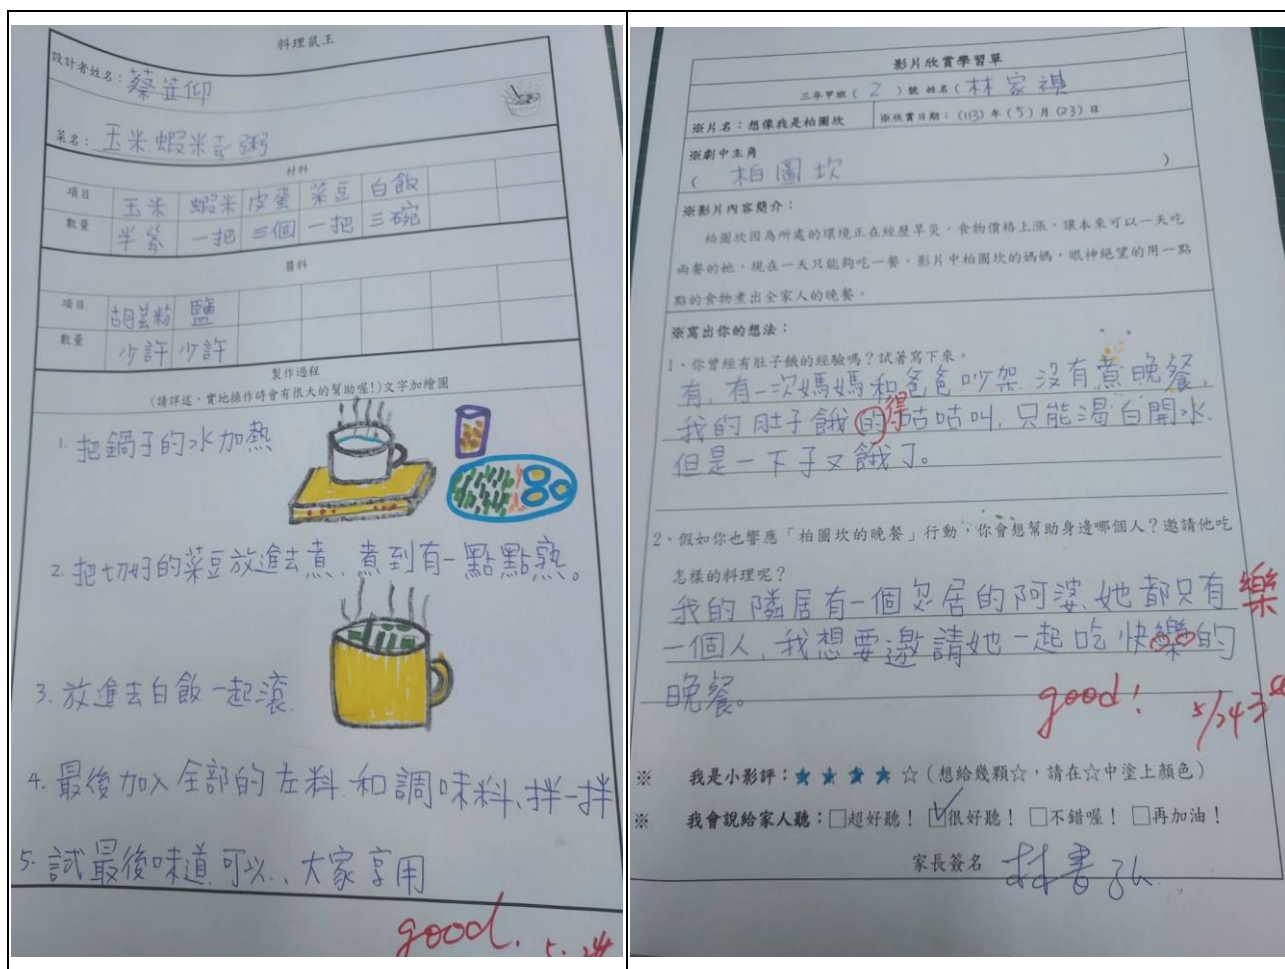 料理鼠王
設計者姓名：蔡苙仰
菜名：玉米蝦米ㄍㄠ粥
材料
項目 玉米 蝦米 皮蛋 菜豆 白飯
數量 半 一把 三個 一把 三碗
醬料
項目 胡琺粉 鹽
數量 少許 少許
製作過程
(請詳述，實地操作時會有很大的幫助喔!)文字加繪圖
1. 把鍋子的水加熱
2. 把切好的菜豆放進去煮、煮到有一點點熟。
3. 放進去白飯一起滾.
4. 最後加入全部的左料.和調味料、拌一拌
5. 試最後味道可以、大家享用
good.
影片欣賞學習單
三年甲班（2）號 姓名（林家禛
※片名：想像我是柏圖坎 ※欣賞日期：(113)年(5)月(23)日
※劇中主角
（ 柏圖坎 ）
※影片內容簡介：
柏圖坎因為所處的環境正在經歷旱災，食物價格上漲，讓本來可以一天吃
兩餐的她，現在一天只能夠吃一餐。影片中柏圖坎的媽媽，眼神絕望的用一點
點的食物煮出全家人的晚餐。
※寫出你的想法：
1、你曾經有肚子餓的經驗嗎？試著寫下來。
有，有一次媽媽和爸爸吵架，沒有煮晚餐，
我的肚子餓的得咕咕叫，只能渴白開水，
但是一下子又餓了。
2、假如你也響應「柏圖坎的晚餐」行動，你會想幫助身邊哪個人？邀請他吃
怎樣的料理呢？
我的隣居有一個居的阿婆，她都只有 樂
一個人，我想要邀請她一起吃快樂的
晚餐。
good! 5/24
※ 我是小影評：★★★★☆（想給幾顆☆，請在☆中塗上顏色）
※ 我會說給家人聽：□超好聽！☑很好聽！□不錯喔！□再加油！
家長簽名 林書弘